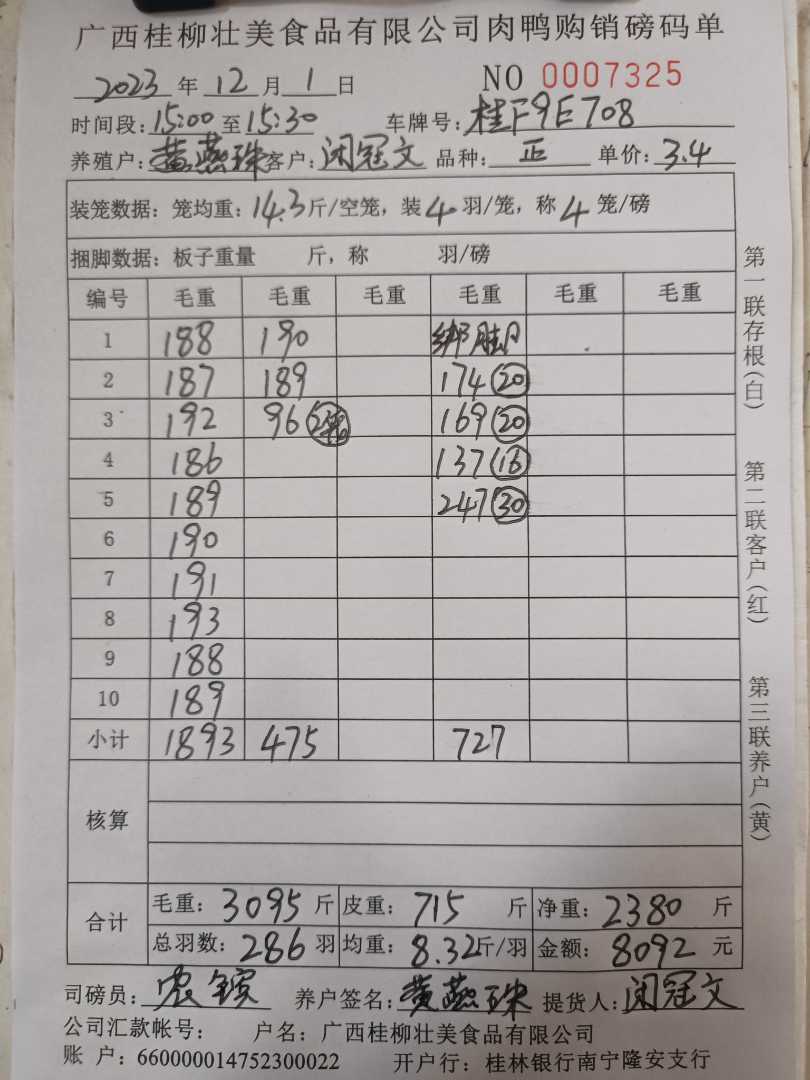 广西桂柳壮美食品有限公司肉鸭购销磅码单
2023 年 12 月 1 日 NO 0007325
时间段: 15:00 至 15:30 车牌号: 桂F9E708
养殖户: 黄燕珠 客户: 闭冠文 品种: 正 单价: 3.4
装笼数据: 笼均重: 14.3 斤/空笼, 装 4 羽/笼, 称 4 笼/磅
捆脚数据: 板子重量 斤, 称 羽/磅
编号 毛重 毛重 毛重 毛重 毛重 毛重
1 188 190 绑脚
2 187 189 174 (20)
3 192 96 169 (20)
4 186 137 (16)
5 189 247 (30)
6 190
7 191
8 193
9 188
10 189
小计 1893 475 727
核算
合计 毛重: 3095 斤 皮重: 715 斤 净重: 2380 斤
总羽数: 286 羽 均重: 8.32 斤/羽 金额: 8092 元
司磅员: 养户签名: 黄燕珠 提货人: 闭冠文
公司汇款帐号: 户名: 广西桂柳壮美食品有限公司
账 户: 660000014752300022 开户行: 桂林银行南宁隆安支行
第一联存根(白) 第二联客户(红) 第三联养户(黄)